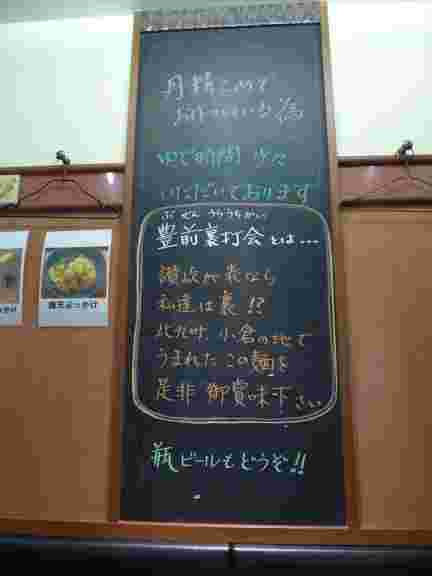 丹精こめて
お作りしている為
ゆで時間 少々
いただいております
ぶ ぜん うらうちかい
豊前裏打会とは…
讃岐が表なら
私達は裏!!
北九州、小倉の地で
うまれた この麺を
是非 御賞味下さい
瓶ビールもどうぞ!!
ぶっかけ